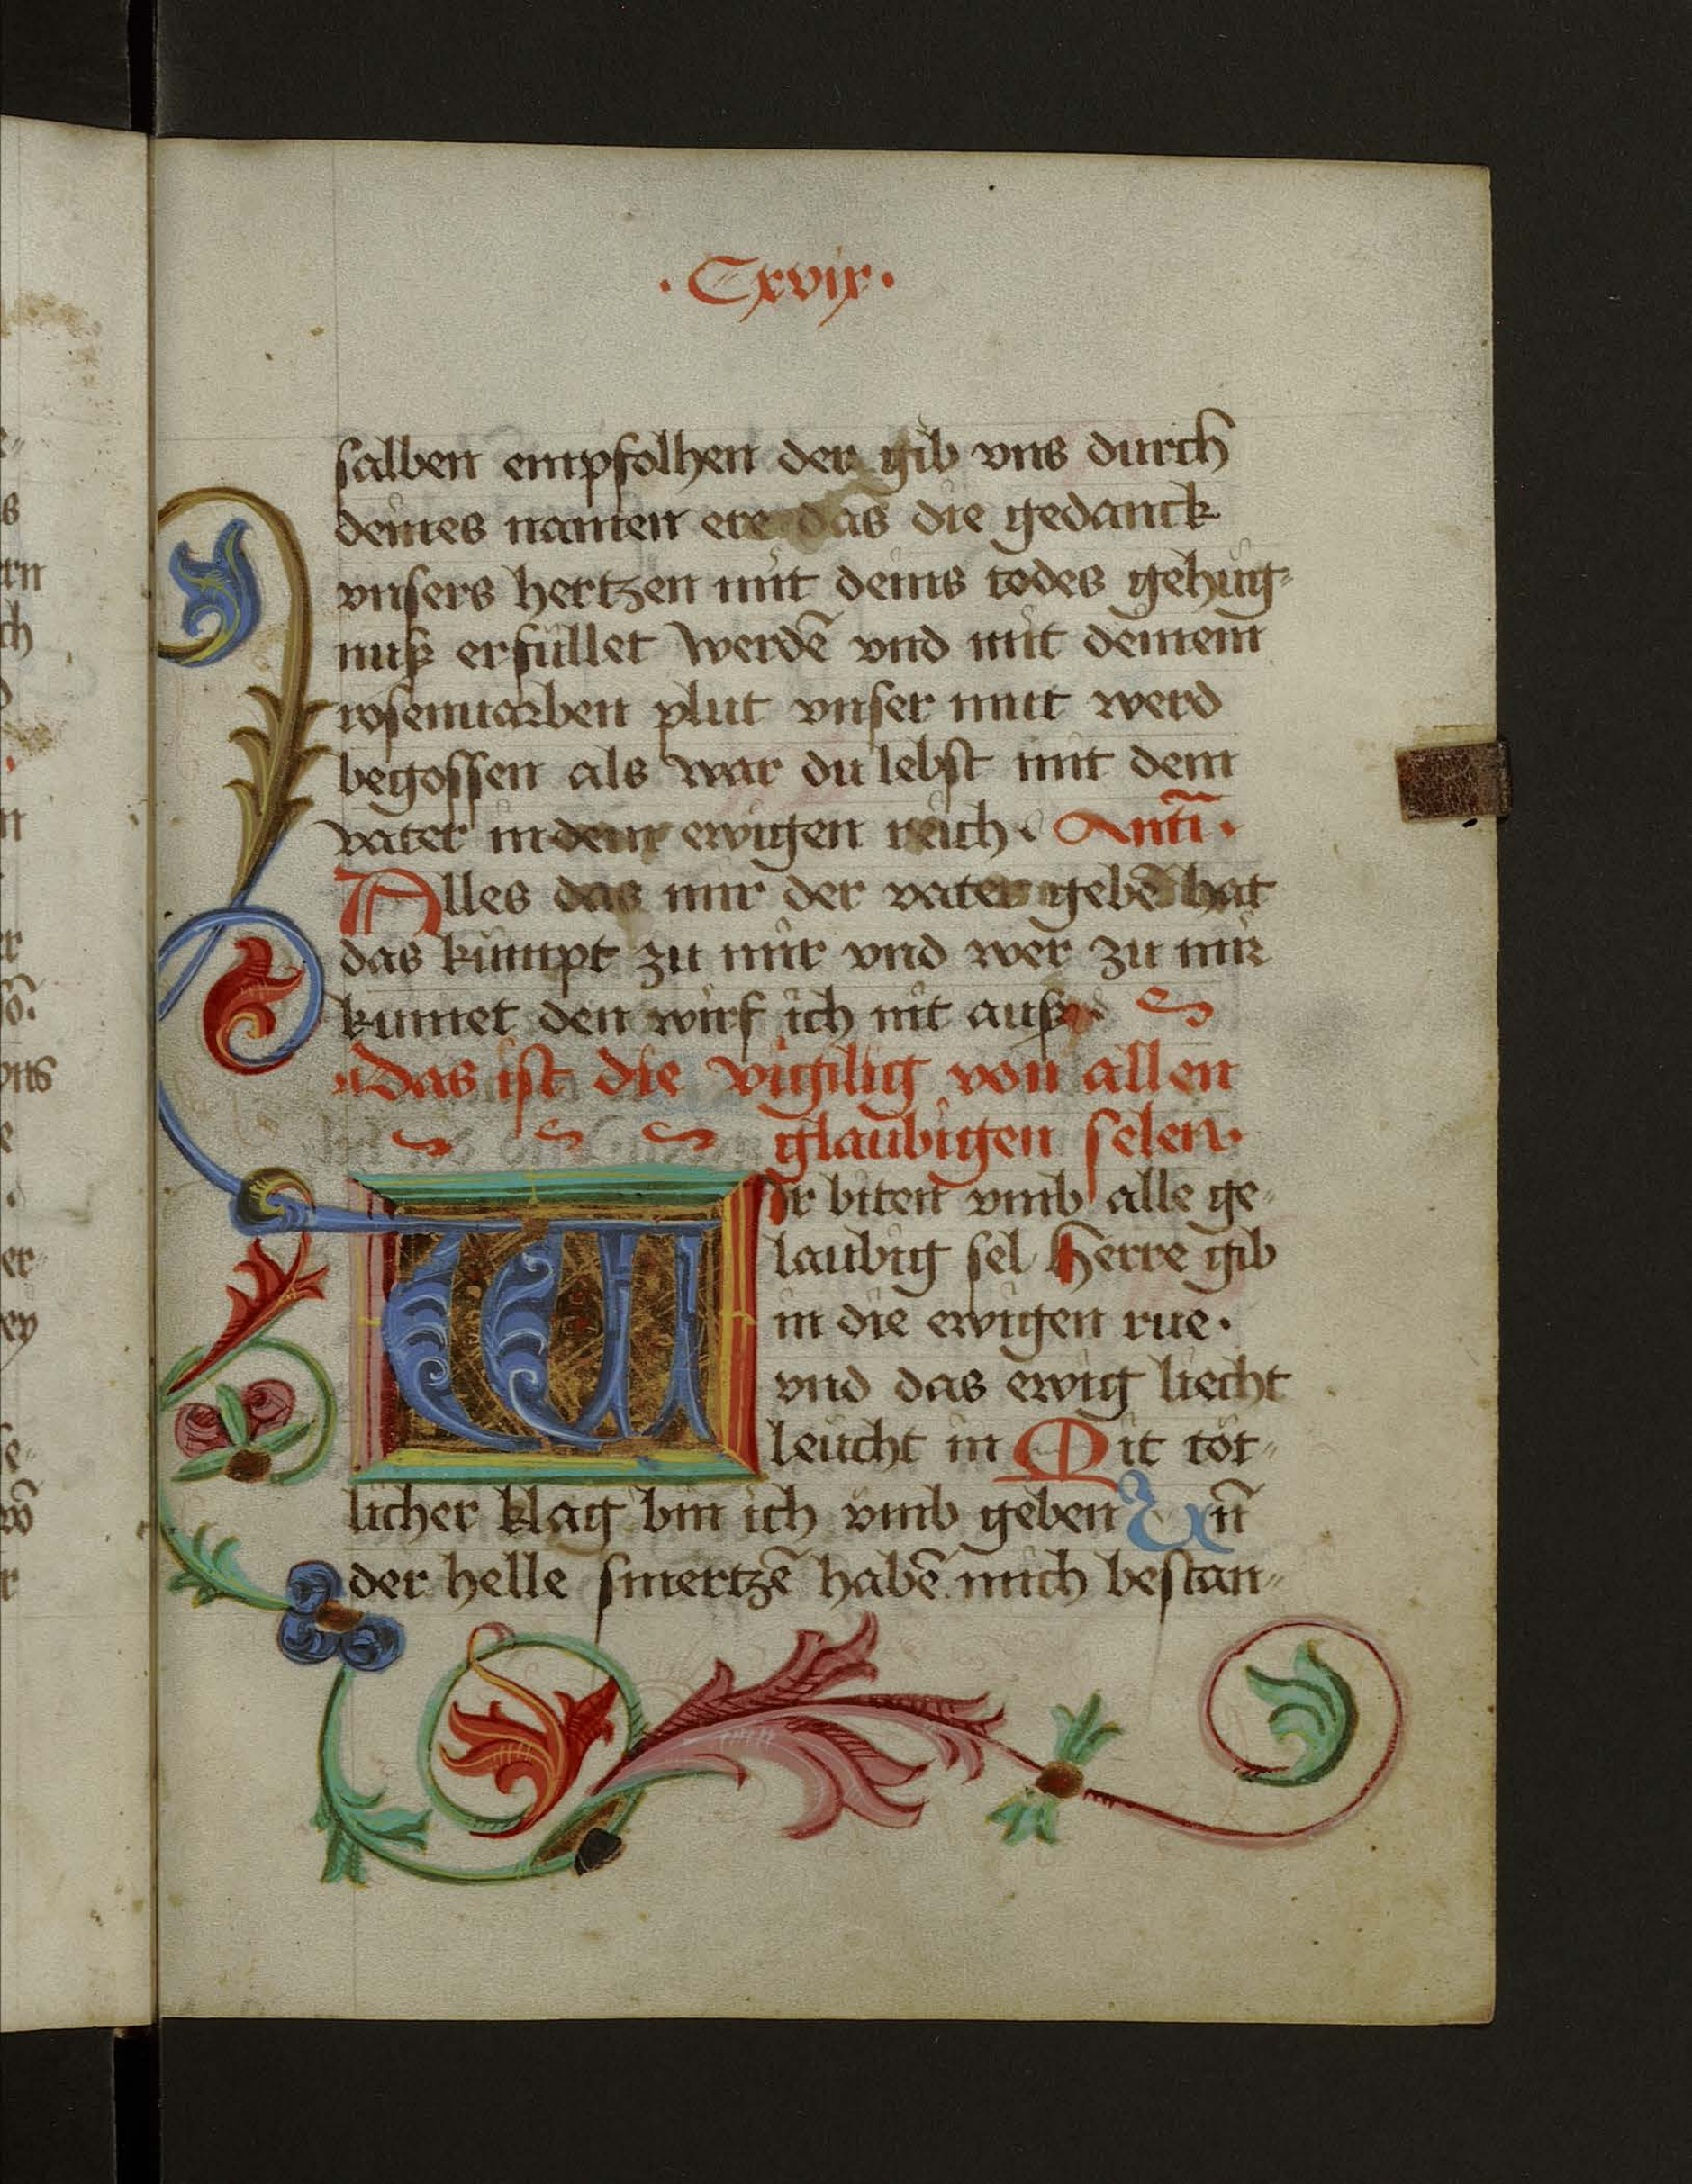 · Cxvix ·
salben empfolhen der gib vns durch
deines namen ere das die gedanck
vnsers hertzen mit deins todes gehúg⸗
nuß erfúllet werdẽ vnd mit deinem
rosenuarben plut vnser mut werd
begossen als war du lebst mit dem
vater in dem ewigen reich · Antĩ ·
Alles das mir der vater gebẽ hat
das kúmpt zu mir vnd wer zu mir
kumet den wirf ich nit auß ·
das ist die vigilig von allen
glaubigen selen ·
WIr biten vmb alle ge⸗
laubig sel Herre gib
in die ewigen rue ·
vnd das ewig liecht
leúcht in Mit tót⸗
licher klag bin ich vmb geben Vñ
der helle smertzẽ habẽ mich bestan⸗